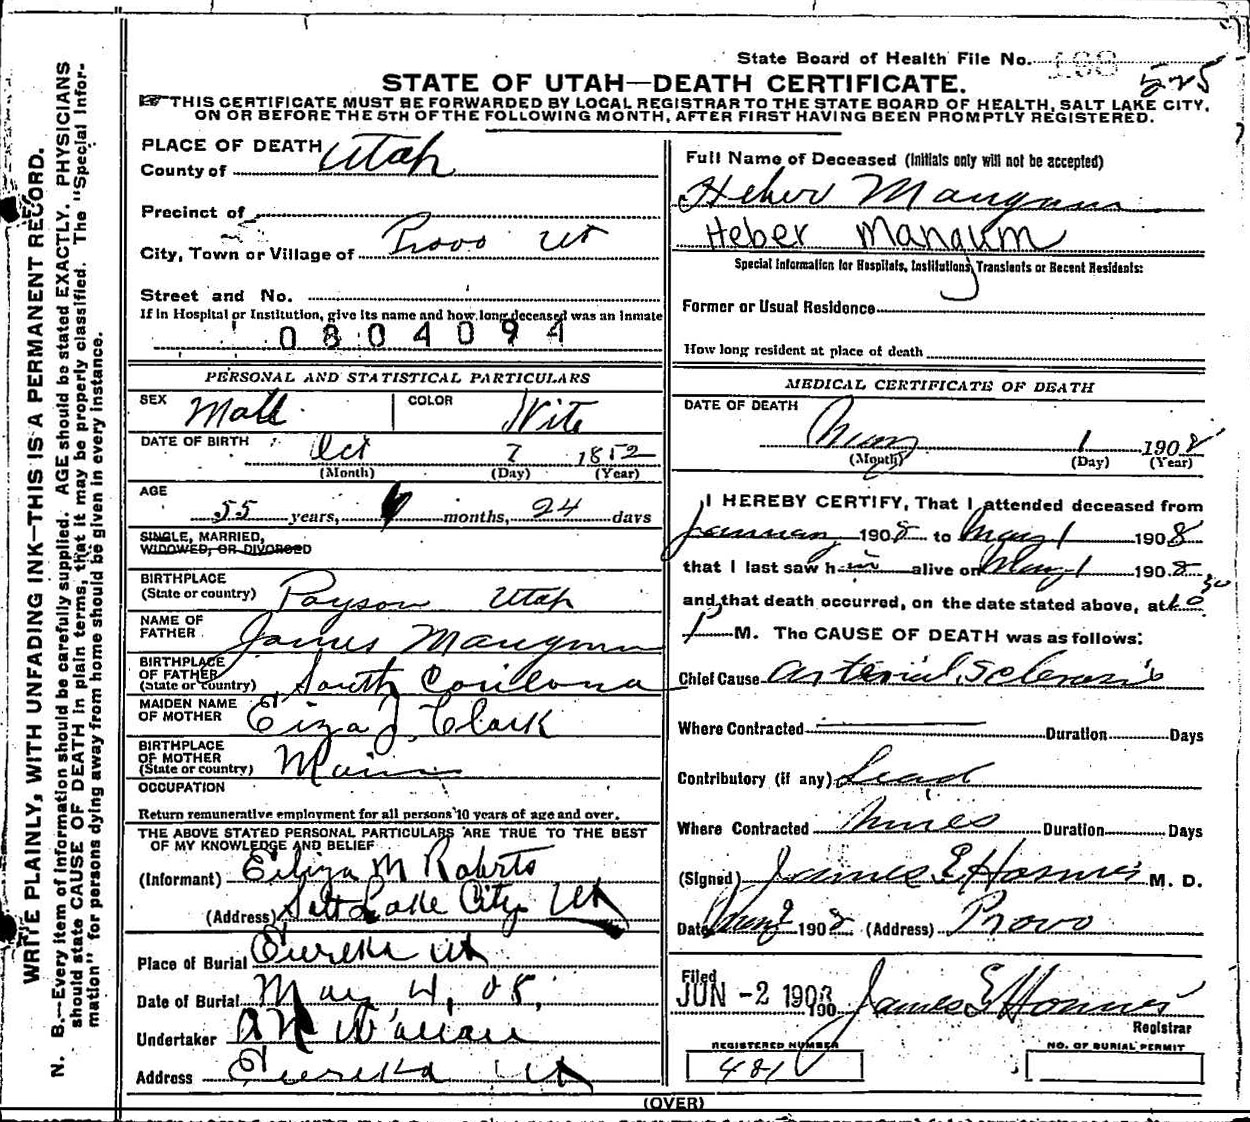 State Board of Health File No. 188
525
STATE OF UTAH—DEATH CERTIFICATE.
THIS CERTIFICATE MUST BE FORWARDED BY LOCAL REGISTRAR TO THE STATE BOARD OF HEALTH, SALT LAKE CITY,
ON OR BEFORE THE 5TH OF THE FOLLOWING MONTH, AFTER FIRST HAVING BEEN PROMPTLY REGISTERED.
WRITE PLAINLY, WITH UNFADING INK—THIS IS A PERMANENT RECORD.
N. B.—Every item of information should be carefully supplied. AGE should be stated EXACTLY. PHYSICIANS
should state CAUSE OF DEATH in plain terms, that it may be properly classified. The "Special Infor-
mation" for persons dying away from home should be given in every instance.
PLACE OF DEATH
County of Utah
Precinct of
City, Town or Village of Provo Ut
Street and No.
If in Hospital or Institution, give its name and how long deceased was an inmate
0804094
PERSONAL AND STATISTICAL PARTICULARS
SEX Mall COLOR Wite
DATE OF BIRTH Oct 7 1852
(Month) (Day) (Year)
AGE
55 years, months, 24 days
SINGLE, MARRIED,
WIDOWED, OR DIVORCED
BIRTHPLACE
(State or country) Payson Utah
NAME OF
FATHER James Mangum
BIRTHPLACE
OF FATHER
(State or country) South Corilona
MAIDEN NAME
OF MOTHER Eiza J Clark
BIRTHPLACE
OF MOTHER
(State or country) Main
OCCUPATION
Return remunerative employment for all persons 10 years of age and over.
THE ABOVE STATED PERSONAL PARTICULARS ARE TRUE TO THE BEST
OF MY KNOWLEDGE AND BELIEF
(Informant) Eiliza M Roberts
(Address) Salt Lake City Ut
Place of Burial Eureka Ut
Date of Burial May 4, 08,
Undertaker
Address Eureka Ut
Full Name of Deceased (Initials only will not be accepted)
Heber Mangum
Heber Mangum
Special Information for Hospitals, Institutions, Transients or Recent Residents:
Former or Usual Residence
How long resident at place of death
MEDICAL CERTIFICATE OF DEATH
DATE OF DEATH
May 1 1908
(Month) (Day) (Year)
I HEREBY CERTIFY, That I attended deceased from
January 1908 to May 1 1908
that I last saw him alive on May 1 1908
and that death occurred, on the date stated above, at
P M. The CAUSE OF DEATH was as follows:
Chief Cause Arterial Sclerosis
Where Contracted Duration Days
Contributory (if any) Lead
Where Contracted Mines Duration Days
(Signed) James E Hosmer M. D.
Date 1908 (Address) Provo
Filed
JUN -2 1908 190 James E Hosmer
Registrar
REGISTERED NUMBER
481
NO. OF BURIAL PERMIT
(OVER)